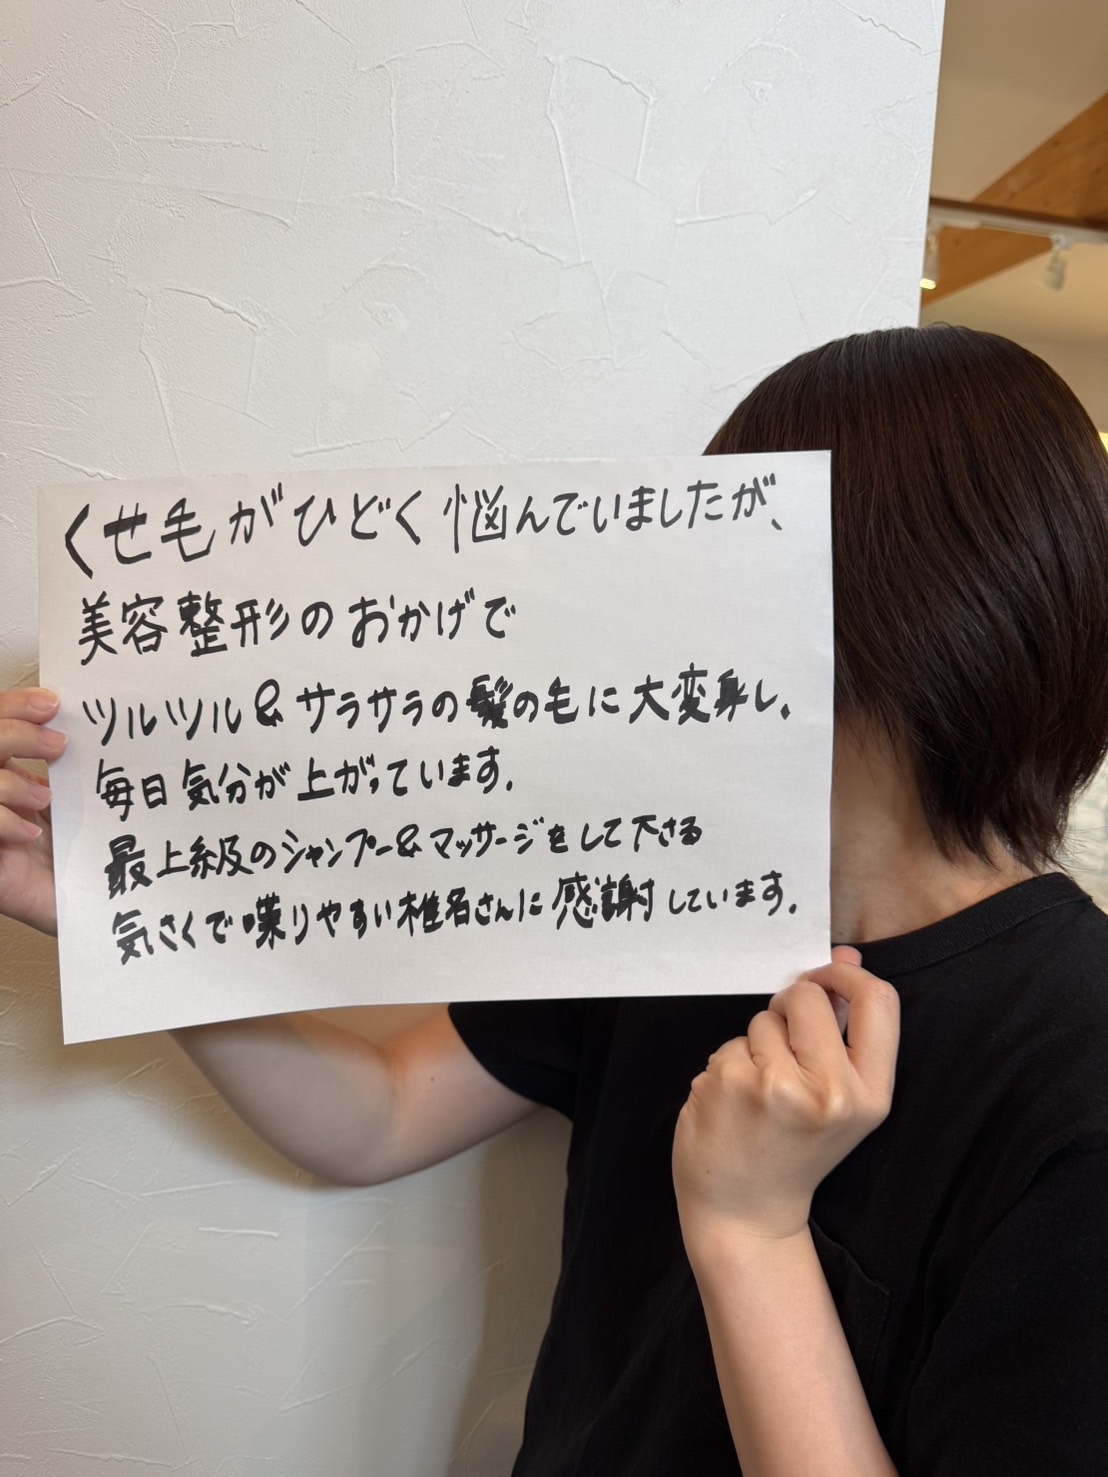 くせ毛がひどく悩んでいましたが、
美容整形のおかげで
ツルツル&サラサラの髪の毛に大変身し、
毎日気分が上がっています。
最上級のシャンプー&マッサージをして下さる
気さくで喋りやすい椎名さんに感謝しています。